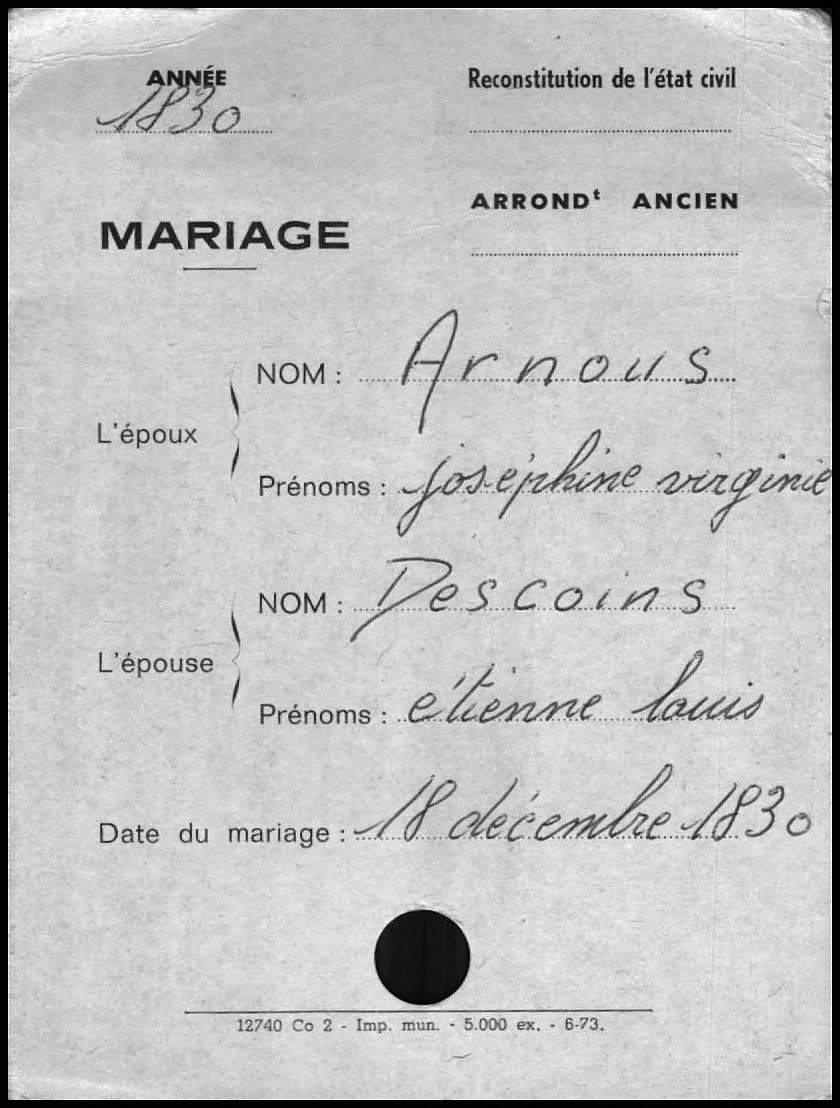 ANNÉE
1830
Reconstitution de l'état civil
ARRONDt ANCIEN
MARIAGE
L'époux
NOM : Arnous
Prénoms : joséphine virginie
L'épouse
NOM : Descoins
Prénoms : étienne louis
Date du mariage : 18 décembre 1830
12740 Co 2 - Imp. mun. - 5.000 ex. - 6-73.